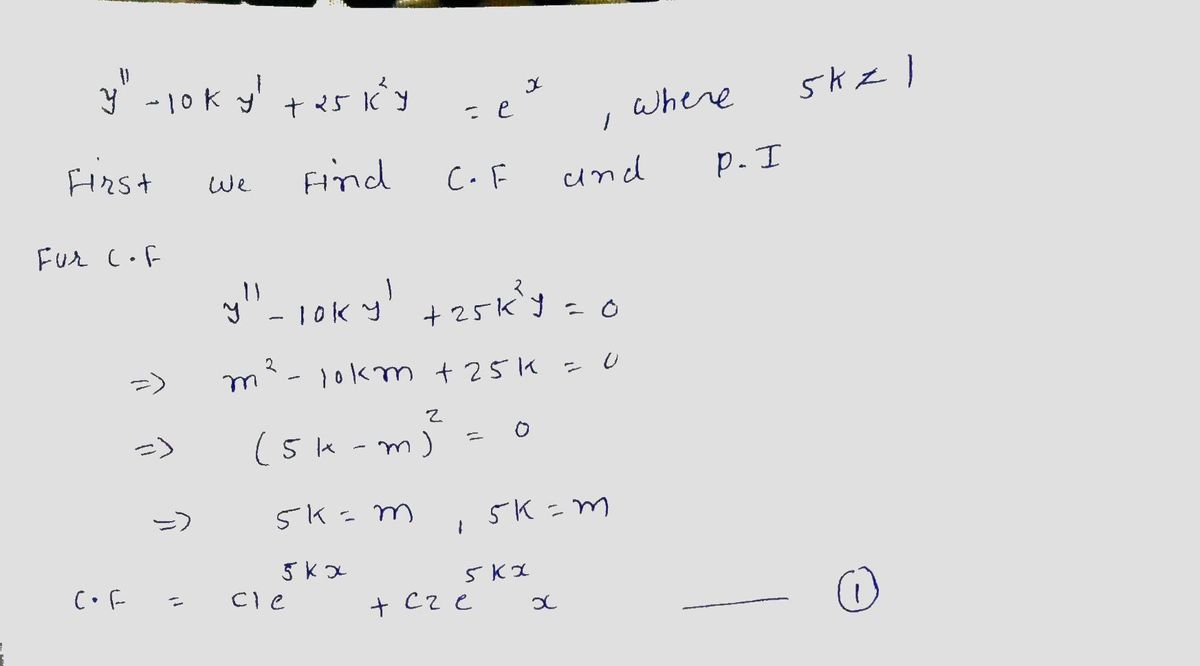 y'' - 10 k y' + 25 k² y = e^x , where 5k ≠ 1
First we Find C.F and P.I
For C.F
y'' - 10k y' + 25k² y = 0
=> m² - 10km + 25k = 0
=> (5k - m)² = 0
=> 5k = m , 5k = m
C.F = C1 e^5kx + C2 e^5kx x —— ①